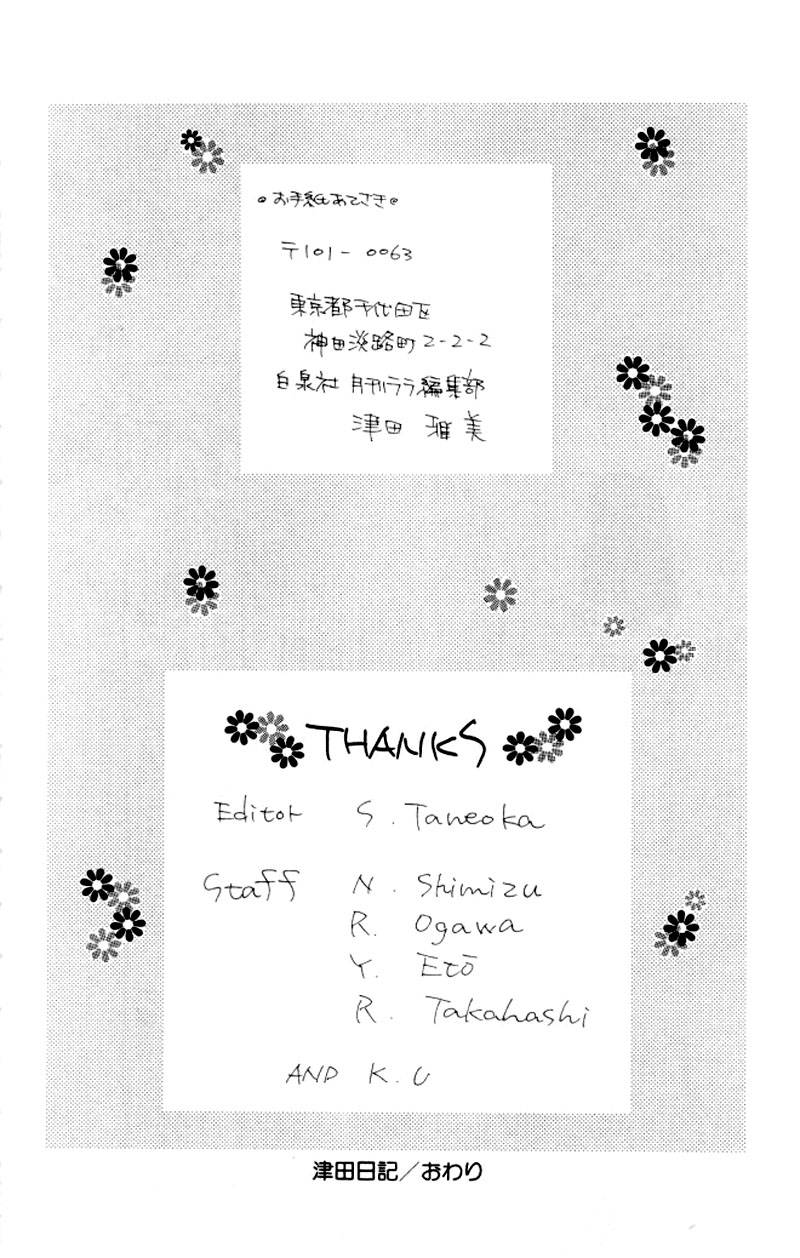 ●お手紙あてさき●
〒101-0063
東京都千代田区
神田淡路町2-2-2
白泉社 月刊ララ編集部
津田 雅美
THANKS
Editor S. Taneoka
Staff N. Shimizu
R. Ogawa
Y. Etō
R. Takahashi
AND K.U
津田日記/おわり